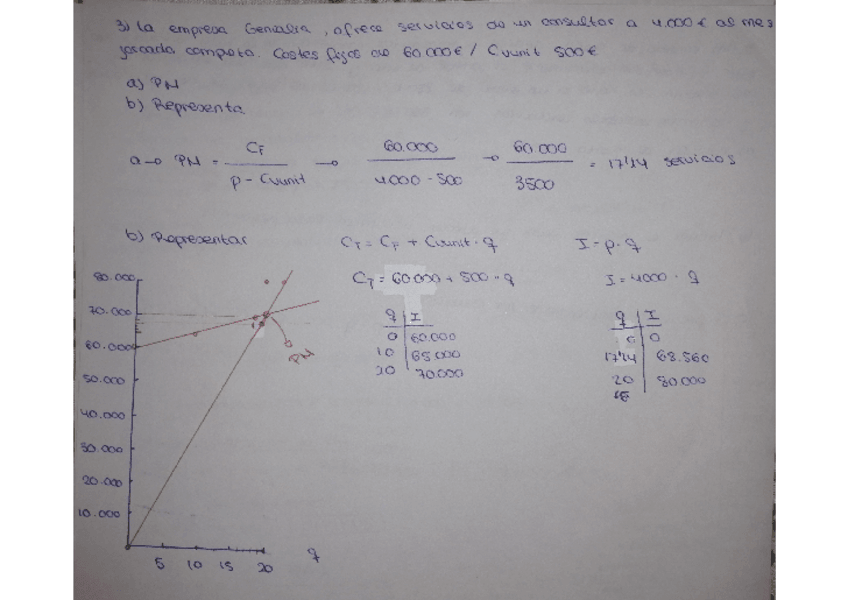 3) La empresa Genialia, ofrece servicios de un consultor a 4.000 € al mes
jornada completa. Costes fijos de 60.000 € / Cvunit 500 €
a) PM
b) Representa
a → PM = CF / p - Cvunit → 60.000 / 4.000 - 500 → 60.000 / 3500 = 17'14 servicios
b) Representar
CT = CF + Cvunit · q
I = p · q
CT = 60.000 + 500 · q
I = 4000 · q
q | I
0 | 60.000
10 | 65.000
20 | 70.000
q | I
0 | 0
17'14 | 68.560
20 | 80.000
80.000
70.000
60.000
50.000
40.000
30.000
20.000
10.000
PM
5 10 15 20 q